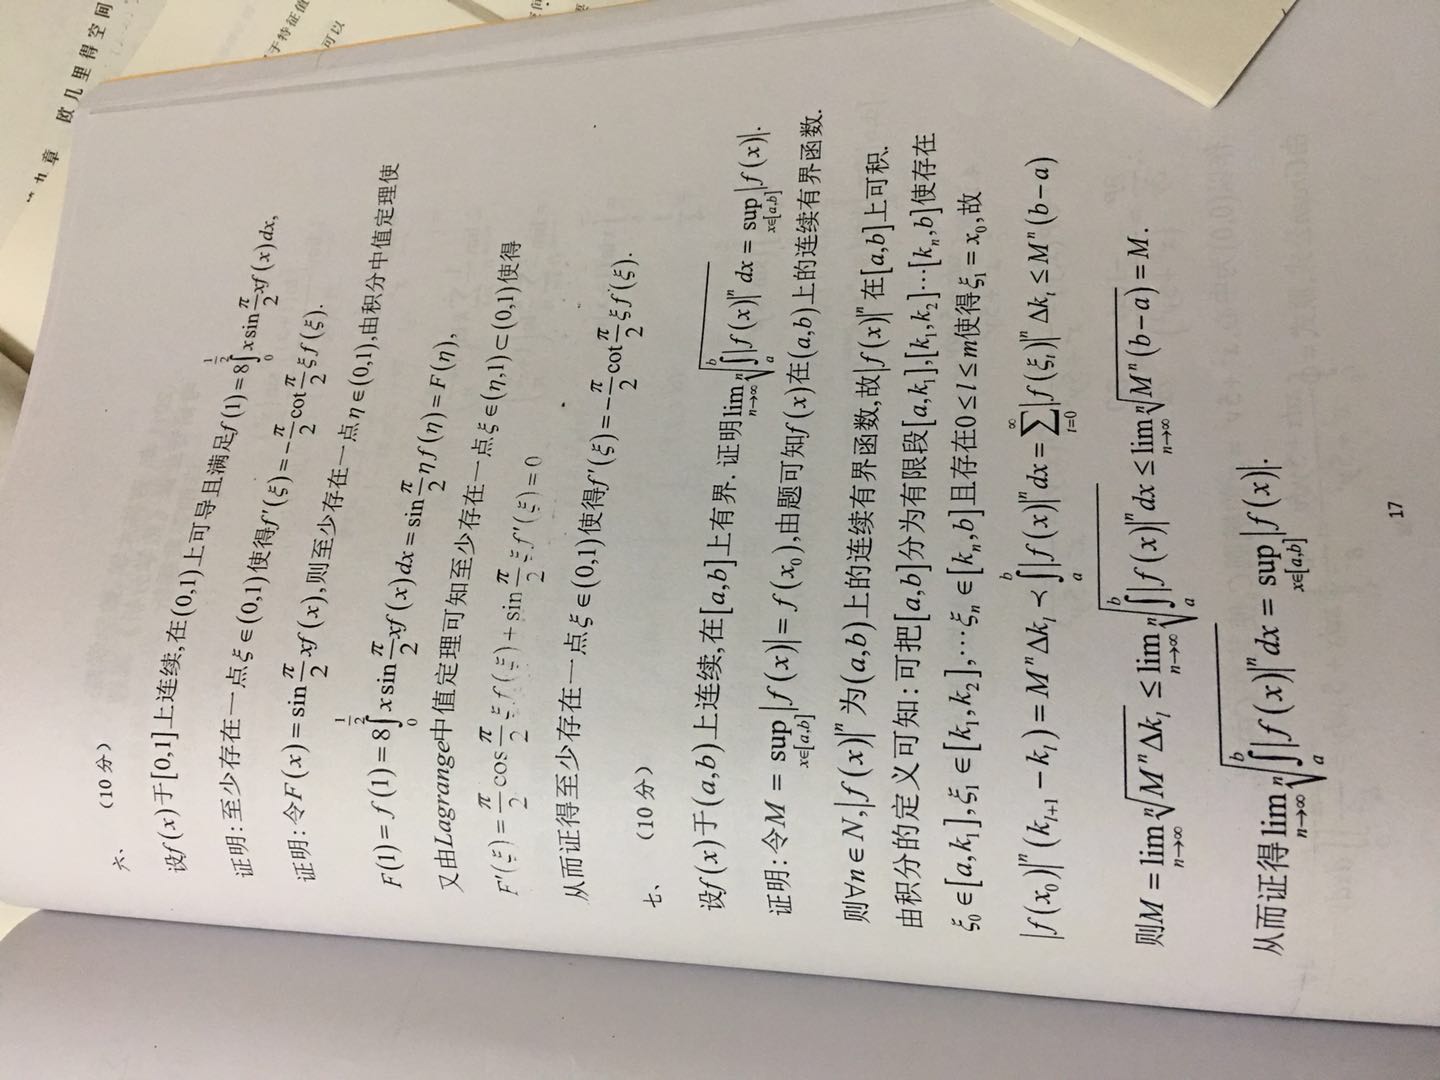 第九章 欧几里得空间
于特征值
可以
六、 （10分）
设f(x)于[0,1]上连续,在(0,1)上可导且满足f(1)=8∫₀^{1/2} x sin π/2 xf(x)dx,
证明:至少存在一点ξ∈(0,1)使得f'(ξ)=-π/2 cot π/2 ξ f(ξ).
证明:令F(x)=sin π/2 xf(x),则至少存在一点η∈(0,1),由积分中值定理使
F(1)=f(1)=8∫₀^{1/2} x sin π/2 xf(x)dx=sin π/2 ηf(η)=F(η),
又由Lagrange中值定理可知至少存在一点ξ∈(η,1)⊂(0,1)使得
F'(ξ)=π/2 cos π/2 ξf(ξ)+sin π/2 ξf'(ξ)=0
从而证得至少存在一点ξ∈(0,1)使得f'(ξ)=-π/2 cot π/2 ξf(ξ).
七、 （10分）
设f(x)于(a,b)上连续,在[a,b]上有界. 证明lim_{n→∞} ⁿ√(∫ₐᵇ|f(x)|ⁿdx)=sup_{x∈[a,b]}|f(x)|.
证明:令M=sup_{x∈[a,b]}|f(x)|=f(x₀),由题可知f(x)在(a,b)上的连续有界函数.
则∀n∈N,|f(x)|ⁿ为(a,b)上的连续有界函数,故|f(x)|ⁿ在[a,b]上可积.
由积分的定义可知:可把[a,b]分为有限段[a,k₁],[k₁,k₂]⋯[kₙ,b]使存在
ξ₀∈[a,k₁],ξ₁∈[k₁,k₂],⋯ξₙ∈[kₙ,b]且存在0≤l≤m使得ξ₁=x₀,故
|f(x₀)|ⁿ(k_{l+1}-k_l)=MⁿΔk_l≺∫ₐᵇ|f(x)|ⁿdx=∑_{l=0}^{∞}|f(ξ_l)|ⁿΔk_l≤Mⁿ(b-a)
则M=lim_{n→∞} ⁿ√(MⁿΔk_l)≤lim_{n→∞} ⁿ√(∫ₐᵇ|f(x)|ⁿdx)≤lim_{n→∞} ⁿ√(Mⁿ(b-a))=M.
从而证得lim_{n→∞} ⁿ√(∫ₐᵇ|f(x)|ⁿdx)=sup_{x∈[a,b]}|f(x)|.
17